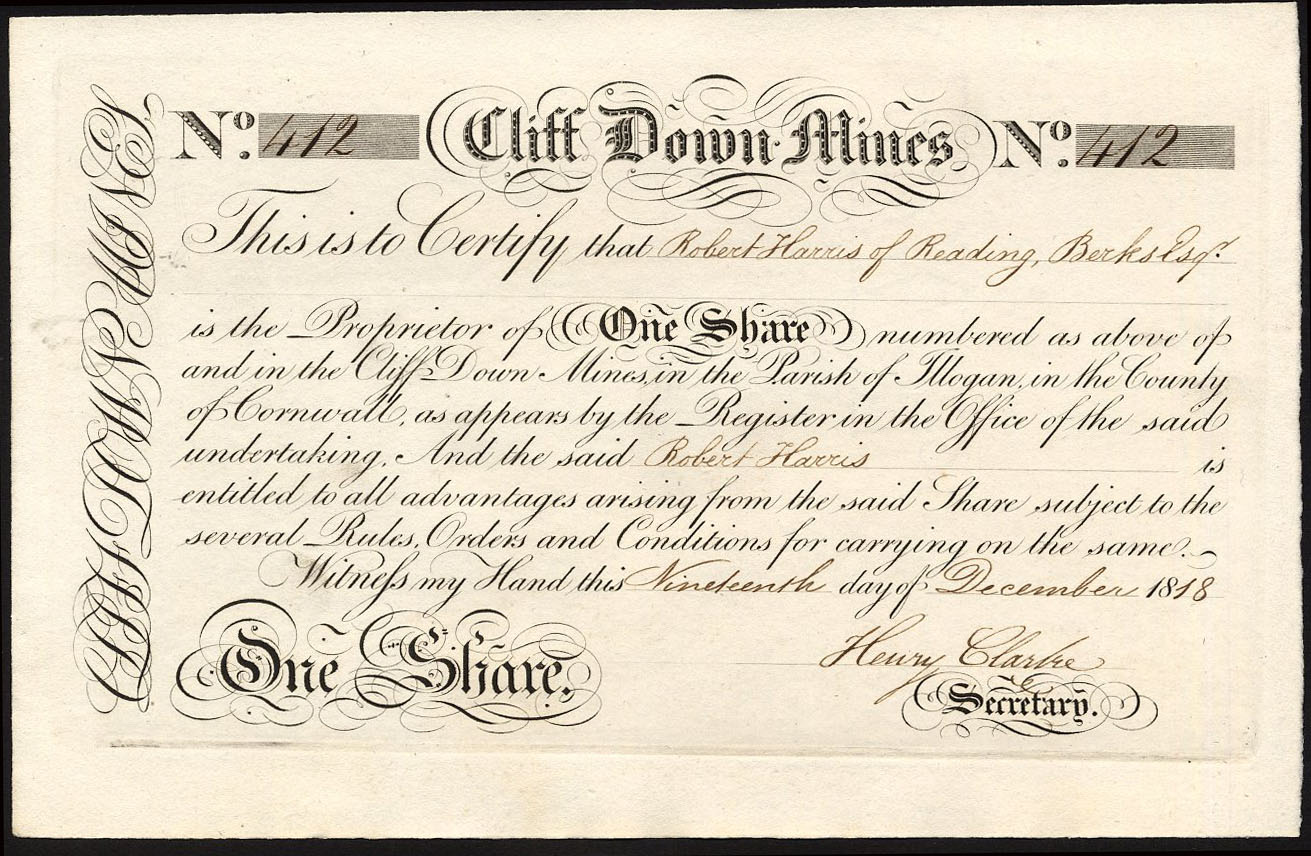 CLIFF DOWN MINES.
No. 412 Cliff Down Mines No. 412
This is to Certify that Robert Harris of Reading, Berks Esqr.
is the Proprietor of One Share numbered as above of
and in the Cliff Down Mines, in the Parish of Illogan, in the County
of Cornwall, as appears by the Register in the Office of the said
undertaking. And the said Robert Harris is
entitled to all advantages arising from the said Share subject to the
several Rules, Orders and Conditions for carrying on the same.
Witneſs my Hand this Nineteenth day of December 1818
Henry Clarke
One Share. Secretary.